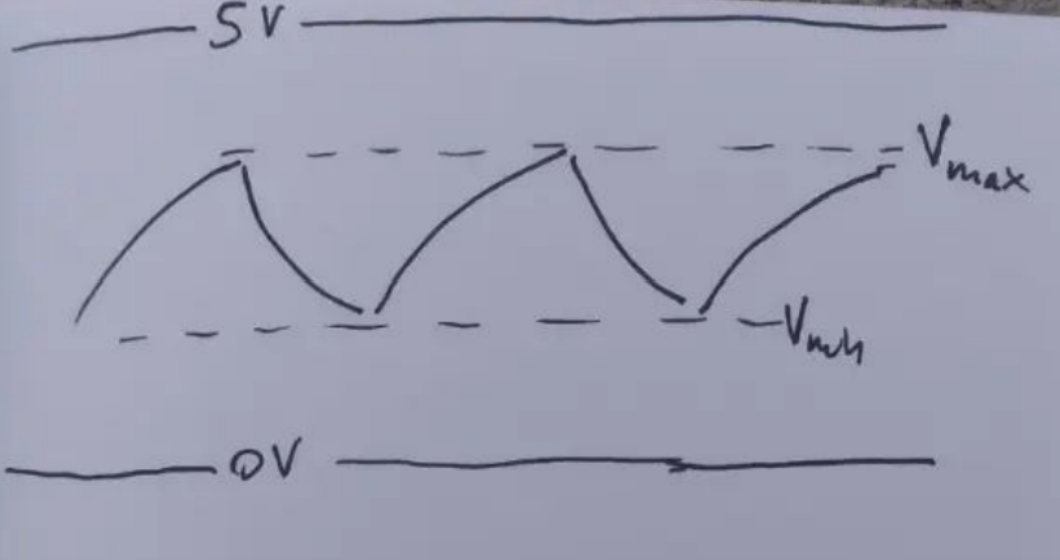 5V
Vmax
Vmin
0V